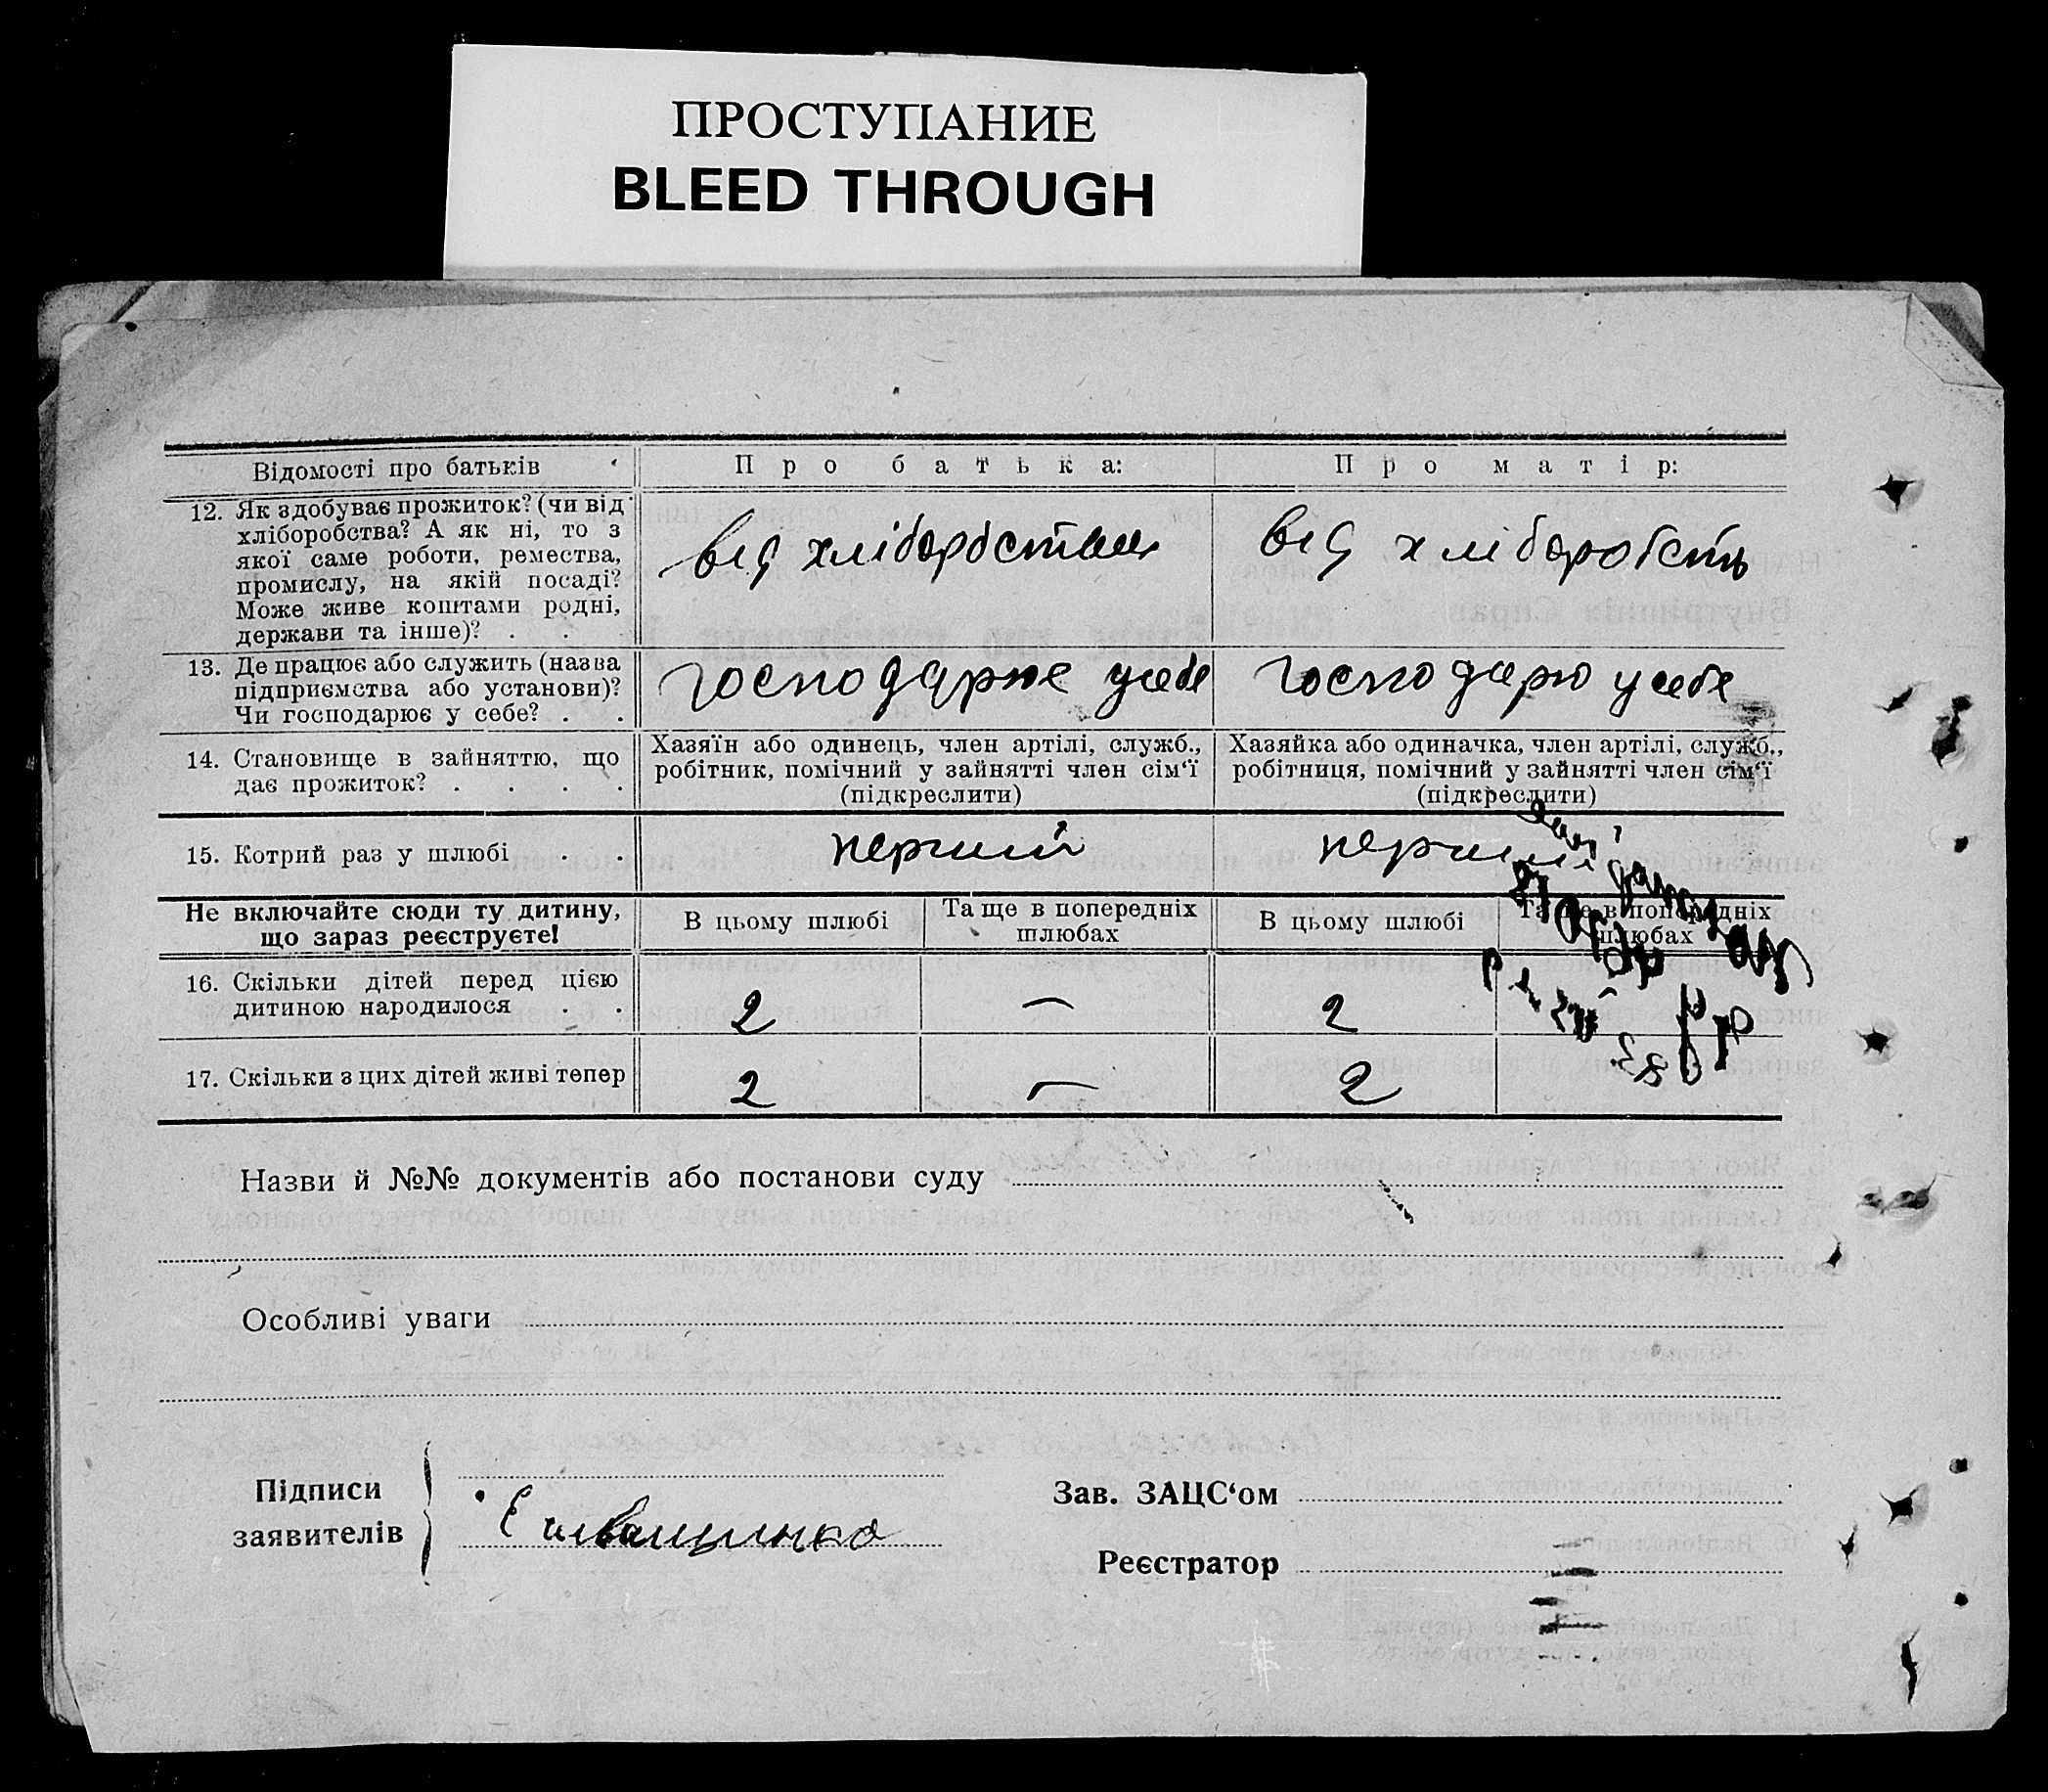 ПРОСТУПАНИЕ
BLEED THROUGH
Відомості про батьків
Про батька:
Про матір:
12. Як здобуває прожиток? (чи від
хліборобства? А як ні, то з
якої саме роботи, ремества,
промислу, на якій посаді?
Може живе коштами родні,
держави та інше)? . .
від
від хліборобств
13. Де працює або служить (назва
підприємства або установи)?
Чи господарює у себе? . .
господарює у себе
господарю у себе
14. Становище в зайняттю, що
дає прожиток? . . . .
Хазяїн або одинець, член артілі, служб.,
робітник, помічний у зайнятті член сім‘ї
(підкреслити)
Хазяйка або одиначка, член артілі, служб.,
робітниця, помічний у зайнятті член сім‘ї
(підкреслити)
15. Котрий раз у шлюбі . .
перший
перший
Не включайте сюди ту дитину,
що зараз реєструєте!
В цьому шлюбі
Та ще в попередніх
шлюбах
В цьому шлюбі
Та ще в попередніх
шлюбах
16. Скільки дітей перед цією
дитиною народилося . .
2
—
2
17. Скільки з цих дітей живі тепер
2
—
2
Назви й №№ документів або постанови суду
Особливі уваги
Підписи
заявителів
Зав. ЗАЦС‘ом
Реєстратор